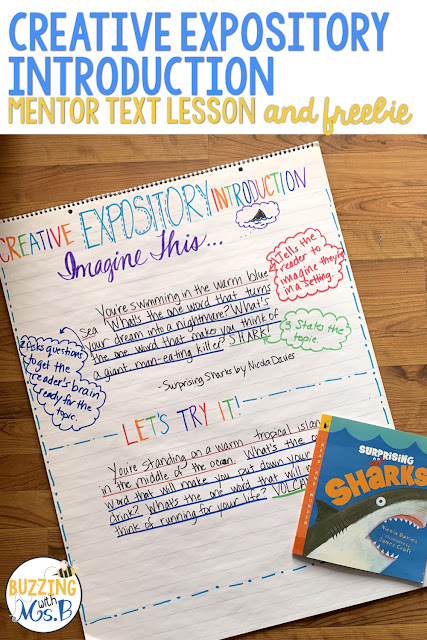 CREATIVE EXPOSITORY
INTRODUCTION
MENTOR TEXT LESSON and freebie
CREATIVE EXPOSITORY INTRODUCTION
Imagine This...
You're swimming in the warm blue
sea. What's the one word that turns
your dream into a nightmare? What's
the one word that makes you think of
a giant man-eating killer? SHARK!
-Surprising Sharks by Nicola Davies
1 Tells the
reader to
imagine they're
in a setting.
2 Asks questions
to get the
reader's brain
ready for the
topic.
3 States the
topic.
LET'S TRY IT!
You're standing on a warm tropical island
in the middle of the ocean. What's the
word that will make you put down your
drink? What's the one word that will
think of running for your life?
SURPRISING
SHARKS
Nicola Davies
James Croft
BUZZING
with
Ms. B